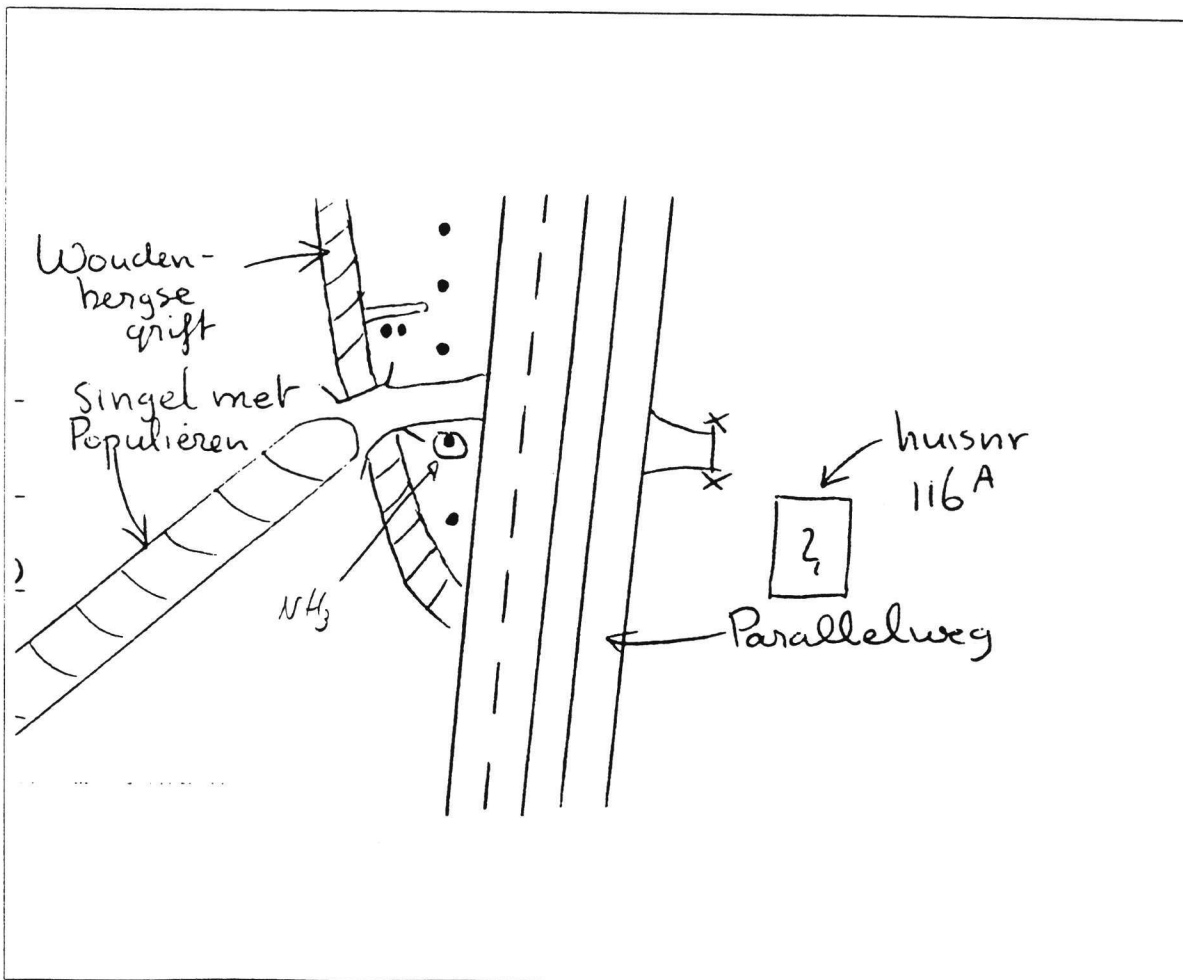 Wouden-
bergse
grift
Singel met
Populieren
NH3
huisnr
116A
Parallelweg